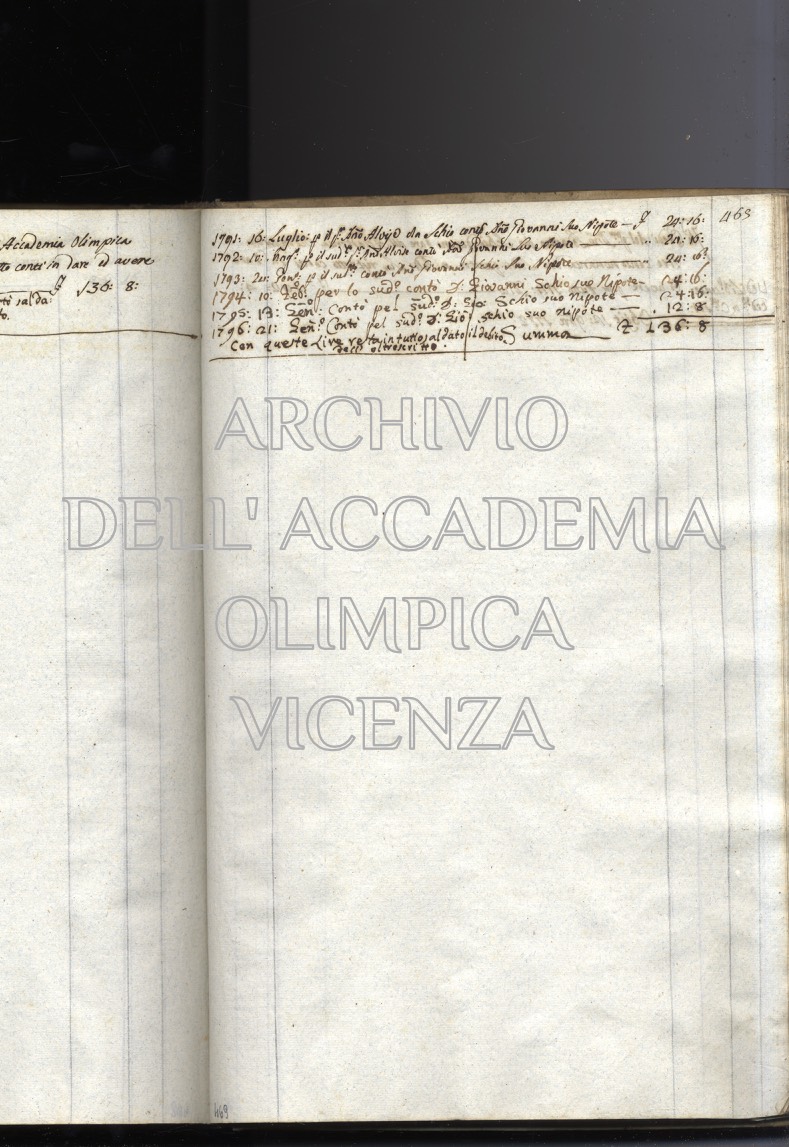 Accademia Olimpica
conti in dare ed avere
136: 8:
salda:
to.
463
1791: 16: Luglio: p il Alvise da Schio contò Giovanni suo Nipote — 24: 16:
1792: 10: Mag.º p il sud.º Alvise contò Giovanni suo Nipote — 24: 16:
1793: 20: p il sud.º contò Giovanni Schio suo Nipote — 24: 16:
1794: 10: Feb.º per lo sud.º contò Giovanni Schio suo Nipote — 24: 16:
1795: 13: Gen.º Contò pel Sud.º Gio: Schio suo nipote — 24: 16:
1796: 21: Gen.º Contò pel sud.º Gio: Schio suo nipote — 12: 8
Con queste Lire resta in tutto saldato il debito Summa — 136: 8
dell' oltroscritto.
ARCHIVIO
DELL' ACCADEMIA
OLIMPICA
VICENZA
469